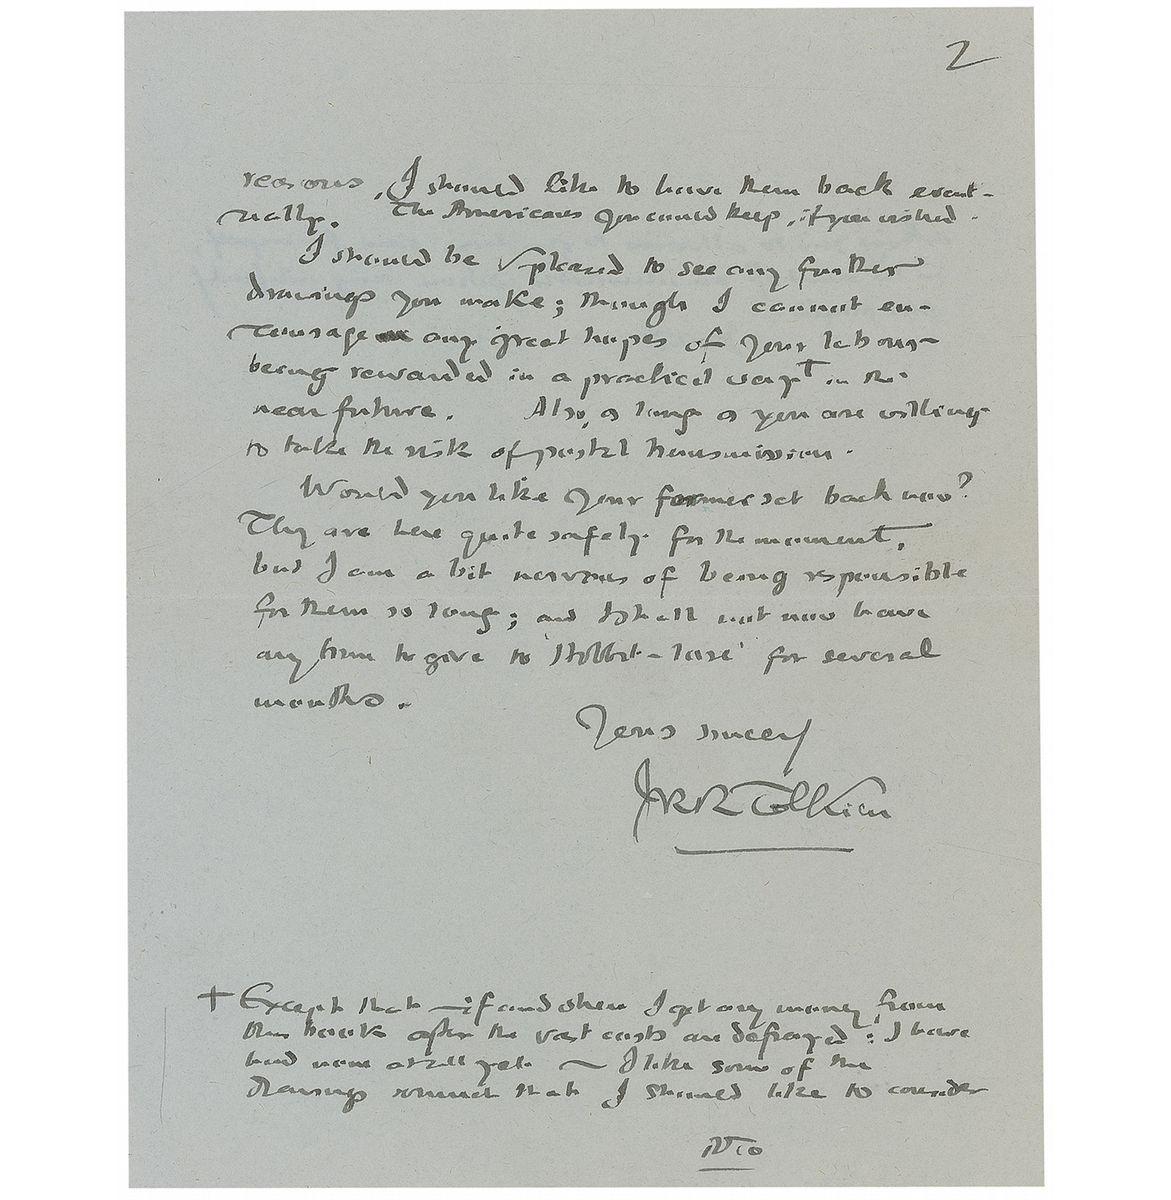 2
reasons, I should like to have them back event-
ually. The Americans you could keep, if you wished.
I should be v. pleased to see any further
drawings you make; though I cannot en-
courage any great hopes of your labour
being rewarded in a practical way† in the
near future. Also, as long as you are willing
to take the risk of postal transmission.
Would you like your former set back now?
They are here quite safely for the moment,
but I am a bit nervous of being responsible
for them so long; and I shall not now have
any time to give to 'Hobbit-lore' for several
months.
Yours sincerely
JRR Tolkien
† Except that — if and when I get any money from
this book after the vast costs are defrayed: I have
had none at all yet — I like some of the
drawings so much that I should like to consider
PTO